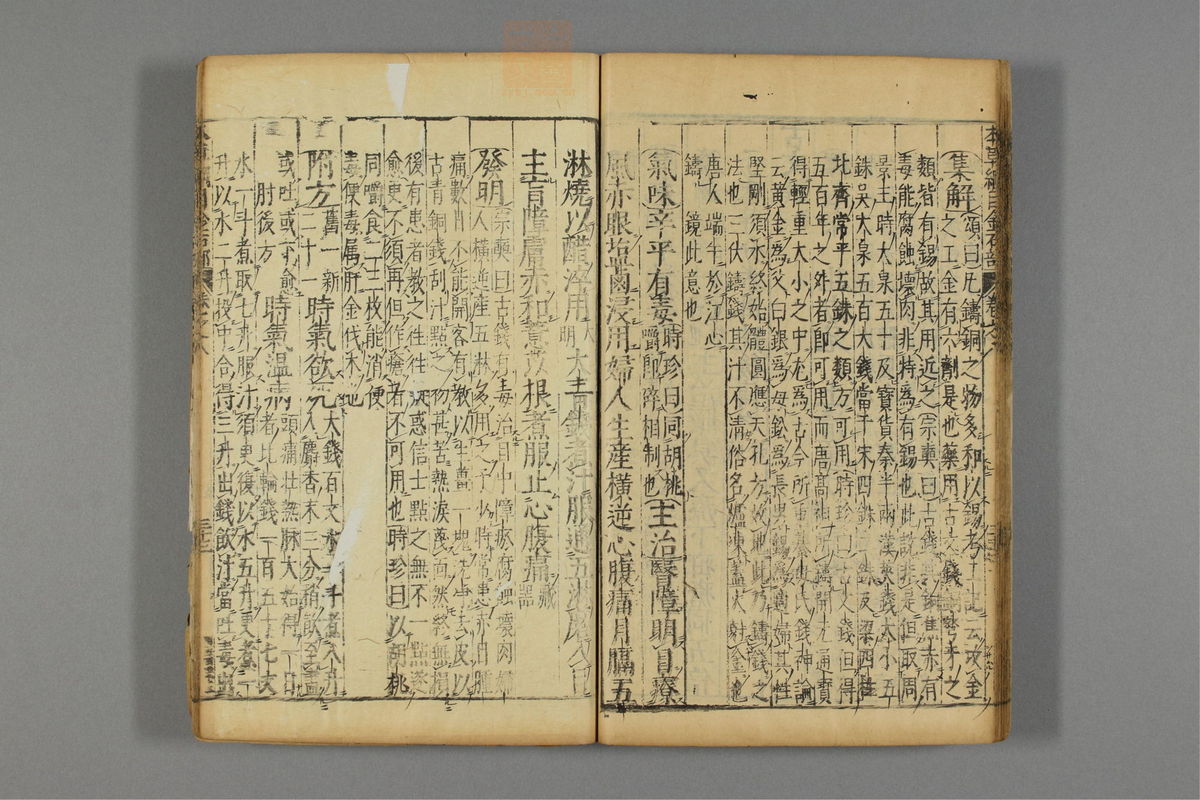 集解頌曰凡鑄銅之物多和以錫考工記云攻金
之工金有六劑是也藥用古文錢
類皆有錫故其用近之宗奭曰古錢其赤有
毒能腐蝕壞肉非特為有錫也此說非是但取周
景王時大泉五十及寶貨秦半兩漢莢錢大小五
銖吳大泉五百大錢當千宋四銖二銖及梁四柱
北齊常平五銖之類方可用時珍曰古文錢但得
五百年之外者即可用而唐高祖所鑄開元通寶
得輕重大小之中尤為古今所重綦母氏錢神論
云黃金為父白銀為母鉛為長男錫為適婦其性
堅剛須水終始體圓應天孔方效地此乃鑄錢之
法也三伏鑄錢其汁不清俗名爐凍蓋火尅金也
唐人端午於江心
鑄鏡此意也
氣味辛平有毒時珍曰同胡桃
嚼即碎相制也主治瞖障明目療
風赤眼塩鹵浸用婦人生產橫逆心腹痛月膈五
淋燒以醋淬用大
明大青錢煮汁服通五淋磨入目
主盲障膚赤和薏苡根煮服止心腹痛藏
器
發明宗奭曰古錢有毒治目中障瘀腐蝕壞肉婦
人橫逆產五淋多用之予少時常患赤目腫
痛數日不能開客有教以生薑一塊洗淨去皮以
古青銅錢刮汁點之初甚苦熱淚蔑面然終無損
後有患者教之往往疑惑信士點之無不一點遂
愈更不須再但作瘡者不可用也時珍曰以胡桃
同嚼食二三枚能消便
毒便毒属肝金伐木也
附方舊一新
二十一時氣欲死大錢百文水一斗煮八升
入麝香末三分稍飲至盡
或吐或下愈
肘後方時氣溫病頭痛壯熱脉大始得一日
者比輪錢一百五十七文
水一斗煮取七升服汁須更復以水五升更煮一
升以水二升投中合得三升出錢飲汁當吐毒出